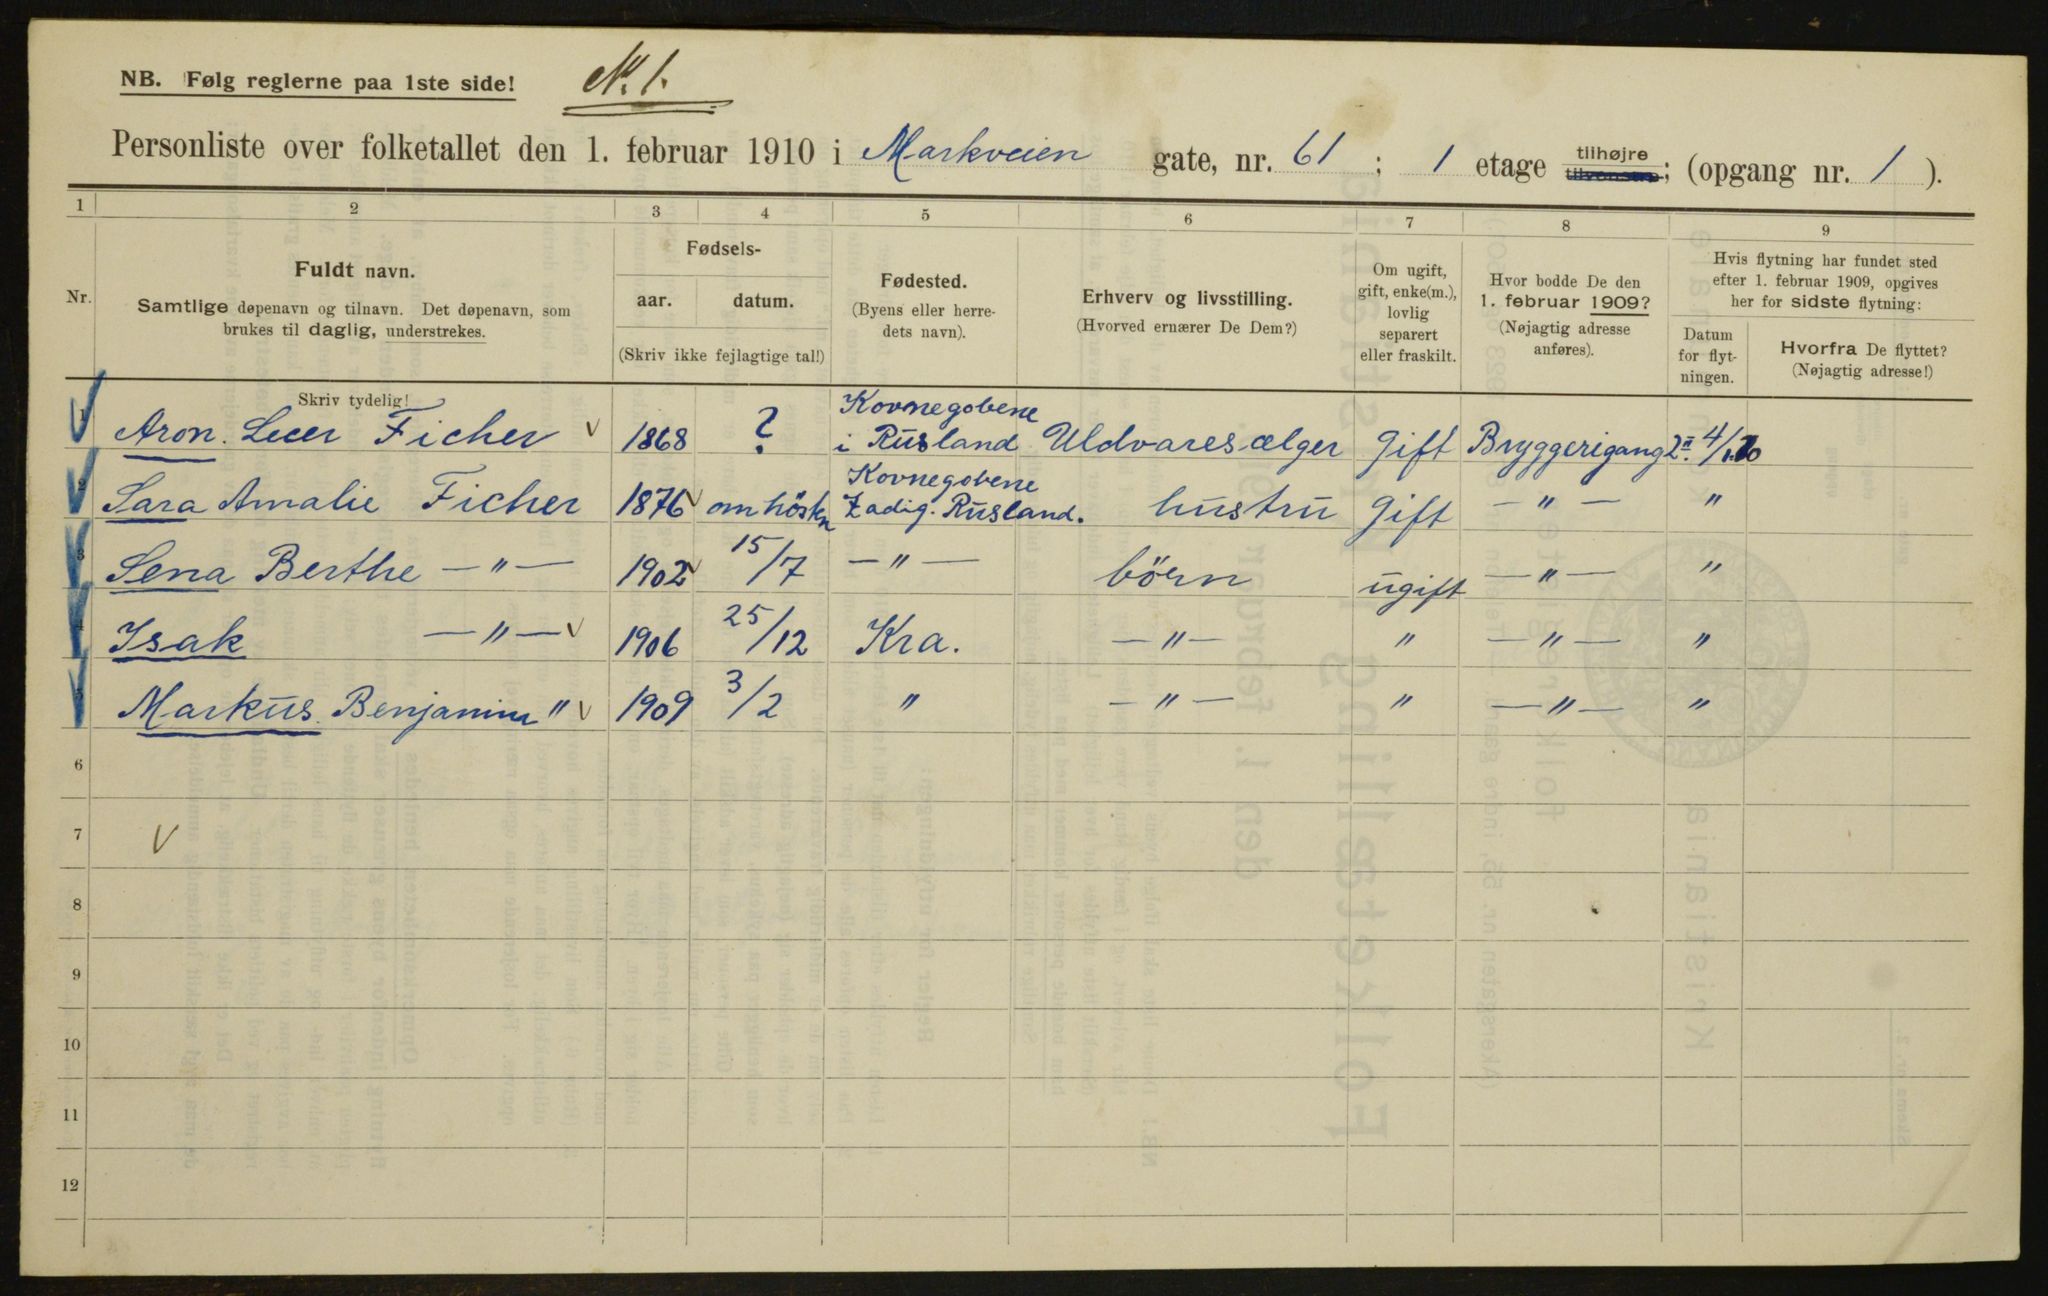 No. 1.
NB. Følg reglerne paa 1ste side!
Personliste over folketallet den 1. februar 1910 i Markveien gate, nr. 61; 1 etage tilhøjre tilvenstre; (opgang nr. 1).
1 2 3 4 5 6 7 8 9
Nr.
Fuldt navn.
Samtlige døpenavn og tilnavn. Det døpenavn, som
brukes til daglig, understrekes.
Fødsels-
aar. datum.
(Skriv ikke fejlagtige tal!)
Fødested.
(Byens eller herre-
dets navn).
Erhverv og livsstilling.
(Hvorved ernærer De Dem?)
Om ugift,
gift, enke(m.),
lovlig
separert
eller fraskilt.
Hvor bodde De den
1. februar 1909?
(Nøjagtig adresse
anføres).
Hvis flytning har fundet sted
efter 1. februar 1909, opgives
her for sidste flytning:
Datum
for flyt-
ningen.
Hvorfra De flyttet?
(Nøjagtig adresse!)
Skriv tydelig!
1 Aron Leer Ficher 1868 ? Kovnegobene i Rusland Uldvaresælger gift Bryggerigang 2II 4/1 10
2 Sara Amalie Ficher 1876 om hösten Kovnegobene Zadig. Rusland. hustru gift — " — "
3 Sena Berthe — " — 1902 15/7 — " — börn ugift — " — "
4 Isak — " — 1906 25/12 Kra. — " — " — " — "
5 Markus Benjamin " 1909 3/2 " — " — " — " — "
6
7
8
9
10
11
12